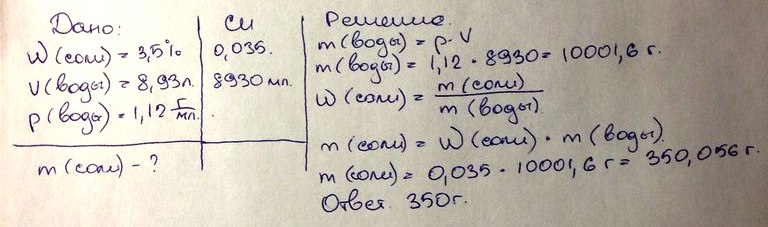 Дано:
W (соли) = 3,5%
V(воды) = 8,93л.
ρ(воды) = 1,12 г/мл.
m (соли) - ?
СИ
0,035.
8930 мл.
Решение.
m(воды) = ρ·V
m(воды) = 1,12 · 8930 = 10001,6 г.
W (соли) = m(соли) / m(воды)
m (соли) = W(соли) · m(воды)
m (соли) = 0,035 · 10001,6 г = 350,056 г.
Ответ. 350г.